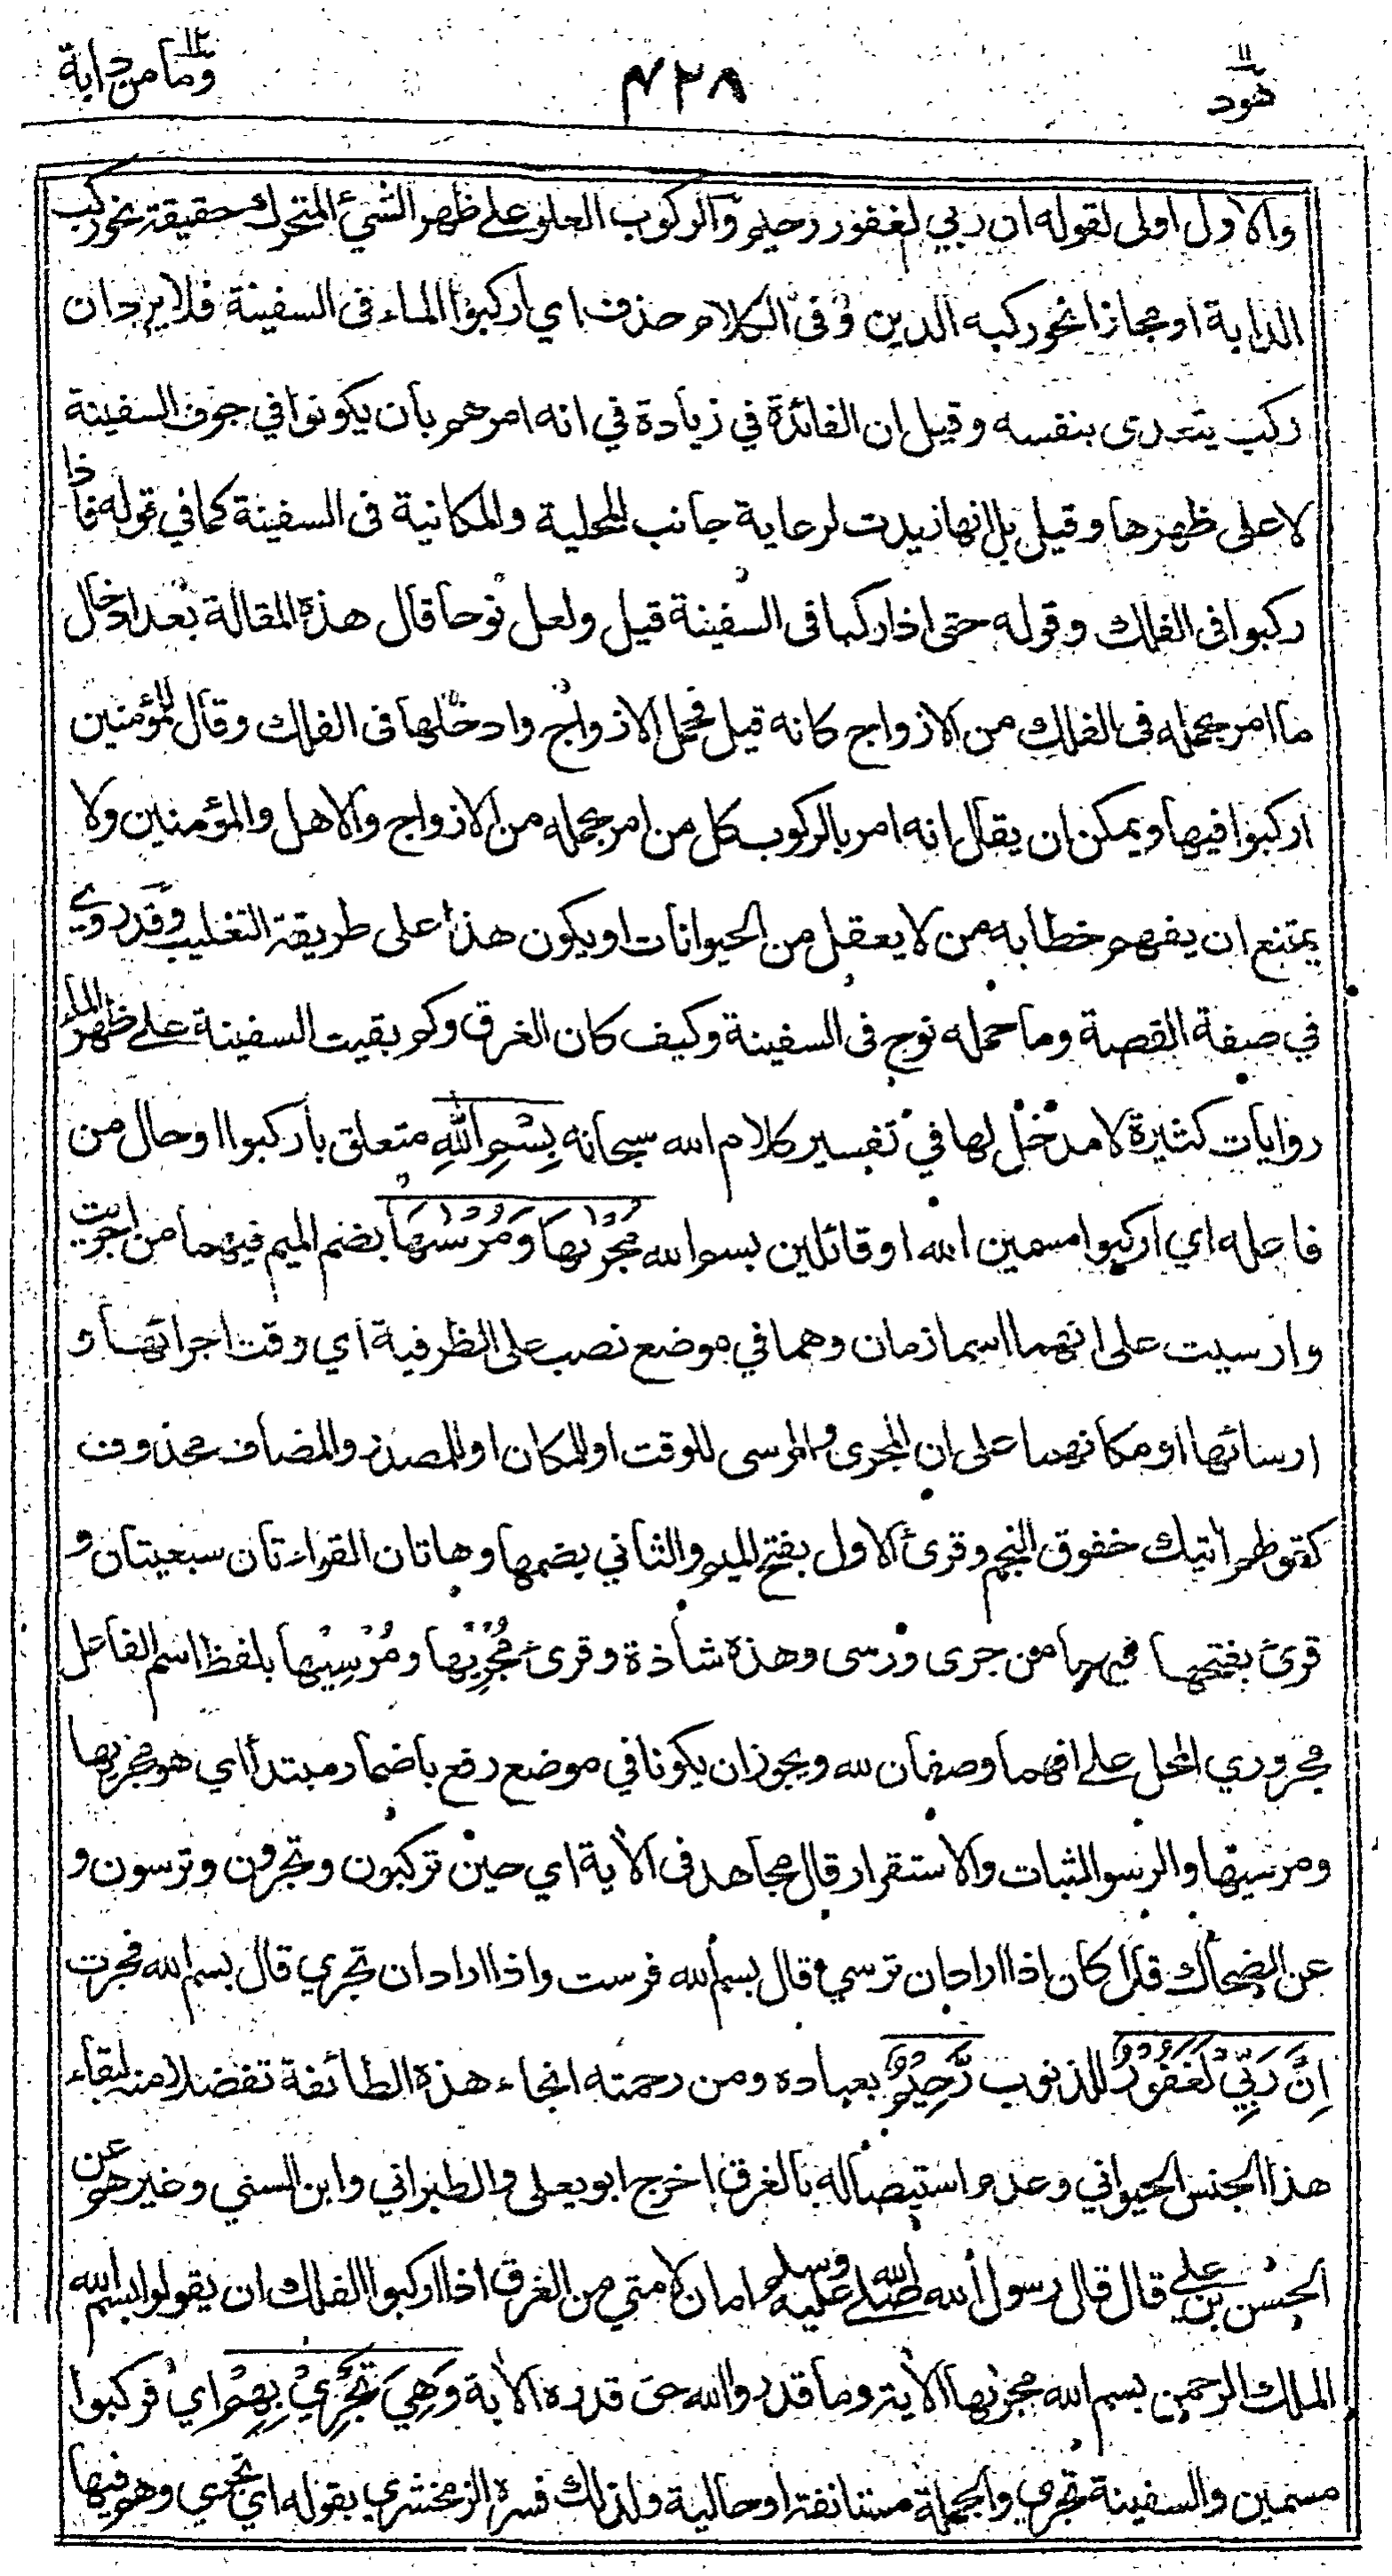 هود ١١
٤٢٨
وما من دابة ١٢
والاول اولى لقوله ان ربي لغفور رحيم والركوب العلو على ظهر الشيئ المتحرك حقيقة نحو ركب
الدابة او مجازا نحو ركبه الدين وفى الكلام حذف اي اركبوا الماء فى السفينة فلا يرد ان
ركب يتعدى بنفسه وقيل ان الفائدة في زيادة في انه امرهم بان يكونوا في جوف السفينة
لا على ظهرها وقيل بل انها زيدت لرعاية جانب المحلية والمكانية فى السفينة كما في قوله فاذا
ركبوا فى الفلك وقوله حتى اذا ركبا فى السفينة قيل ولعل نوحا قال هذه المقالة بعد ادخال
ما امر بحمله فى الفلك من الازواج كانه قيل فحمل الازواج وادخلها فى الفلك وقال للمؤمنين
اركبوا فيها ويمكن ان يقال انه امر بالركوب كل من امر بحمله من الازواج والاهل والمؤمنين ولا
يمتنع ان يفهم خطابه من لا يعقل من الحيوانات او يكون هذا على طريقة التغليب وقد روي
في صفة القصة وما حمله نوح فى السفينة وكيف كان الغرق وكم بقيت السفينة على ظهر الماء
روايات كثيرة لا مدخل لها في تفسير كلام الله سبحانه بِسْمِ اللهِ متعلق باركبوا او حال من
فاعله اي اركبوا مسمين الله او قائلين بسم الله مجرىها ومرسىها بضم الميم فيهما من اجريت
وارسيت على انهما اسما زمان وهما في موضع نصب على الظرفية اي وقت اجرائها و
ارسائها او مكانهما على ان المجرى والمرسى للوقت او المكان او للمصدر والمضاف محذوف
كقولهم اتيك خفوق النجم وقرئ الاول بفتح الميم والثاني بضمها وهاتان القراءتان سبعيتان و
قرئ بفتحها فيهما من جرى ورسى وهذه شاذة وقرئ مُجْرِيْها ومُرْسِيْها بلفظ اسم الفاعل
مجروري المحل على انهما وصفان لله ويجوز ان يكونا في موضع رفع باضمار مبتدأ اي هو مجريها
ومرسيها والرسو الثبات والاستقرار قال مجاهد فى الاية اي حين تركبون وتجرون وترسون و
عن الضحاك قال كان اذا اراد ان ترسي قال بسم الله فرست واذا اراد ان تجري قال بسم الله فجرت
اِنَّ رَبِّيْ لَغَفُوْرٌ للذنوب رَّحِيْمٌ بعباده ومن رحمته انجاء هذه الطائفة تفضلا منه لبقاء
هذا الجنس الحيواني وعدم استيصاله بالغرق اخرج ابو يعلى والطبراني وابن السني وغيرهم عن
الحسن بن علي قال قال رسول الله صلى الله عليه وسلم امان لامتي من الغرق اذا اركبوا الفلك ان يقولوا بسم الله
الملك الرحمن بسم الله مجرىها الاية وما قدروا الله حق قدره الاية وَهِيَ تَجْرِيْ بِهِمْ اي فركبوا
مسمين والسفينة تجري والجملة مستانفة او حالية ولذلك فسره الزمخشري بقوله اي تجري وهم فيها